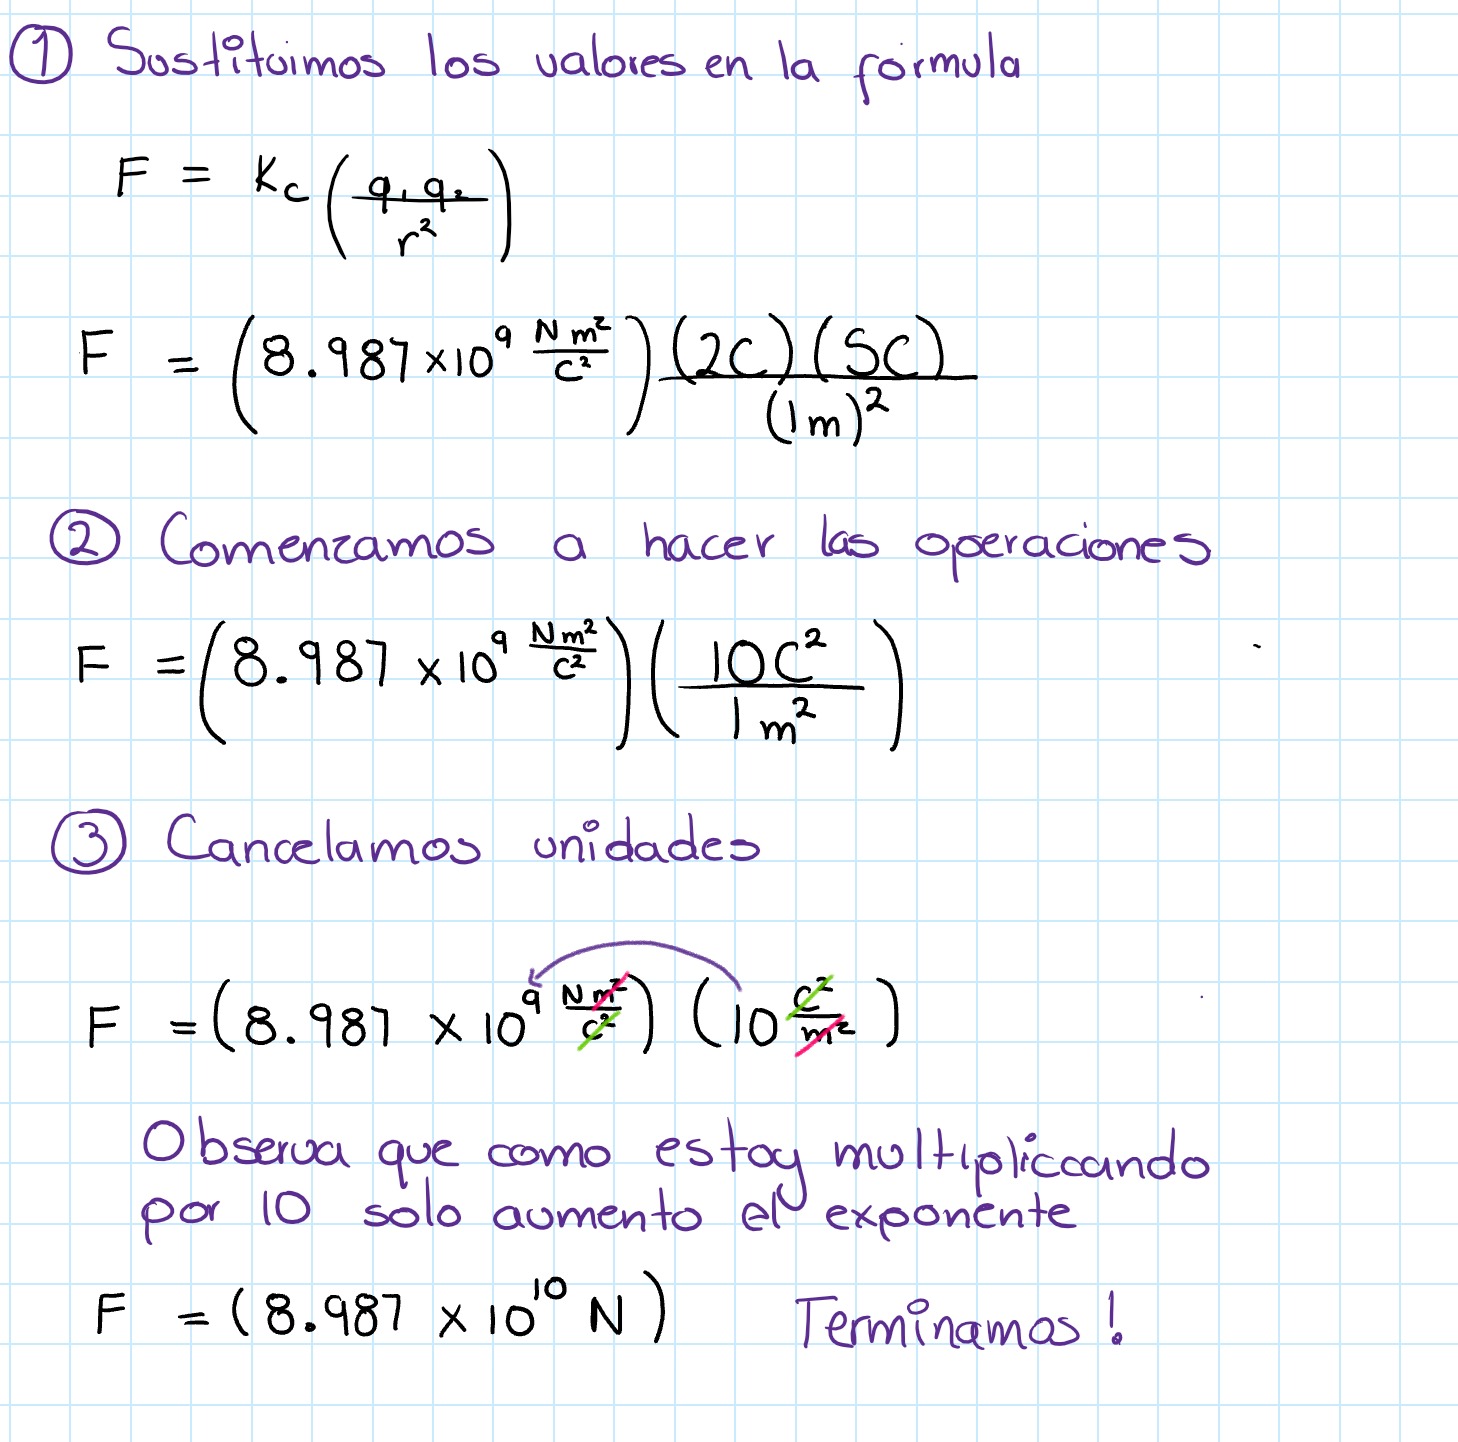 ① Sustituimos los valores en la formula
F = Kc (q₁ q₂ / r²)
F = (8.987 × 10⁹ Nm²/C²) (2C)(5C) / (1m)²
② Comenzamos a hacer las operaciones
F = (8.987 × 10⁹ Nm²/C²) (10C² / 1m²)
③ Cancelamos unidades
F = (8.987 × 10⁹ Nm²/C²) (10 C²/m²)
Observa que como estoy multipliccando
por 10 solo aumento el exponente
F = (8.987 × 10¹⁰ N) Terminamos!